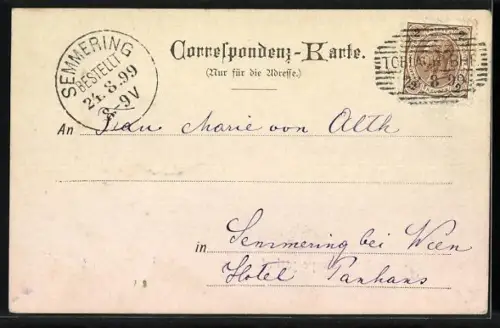 Correspondenz-Karte.
(Nur für die Adresse.)
SEMMERING
BESTELLT
24.8.99
8-9V
An Frau Marie von Alth
in Semmering bei Wien
Hotel Panhans